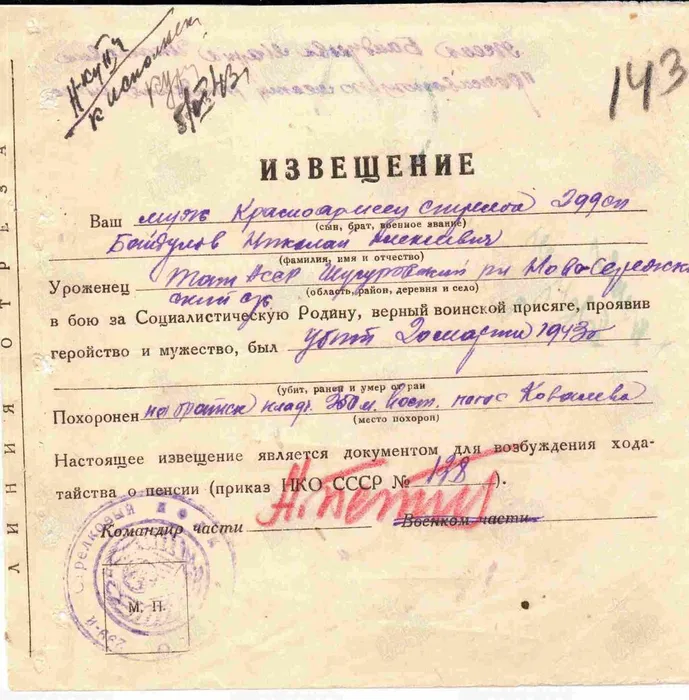 к исполнен.
5/VI 43
143
ИЗВЕЩЕНИЕ
Ваш муж Красноармеец стрелок 299сп
(сын, брат, военное звание)
Байдулов Николай Алексеевич
(фамилия, имя и отчество)
Уроженец Тат АССР Шугуровский рн Ново-Сережкин
(область, район, деревня и село)
ский с/с
в бою за Социалистическую Родину, верный воинской присяге, проявив
геройство и мужество, был убит 20 марта 1943г
(убит, ранен и умер от ран
Похоронен на братск. кладб. 250 м. вост. Ковалева
(место похорон)
Настоящее извещение является документом для возбуждения хода-
тайства о пенсии (приказ НКО СССР № 138 ).
Командир части Военком части
Стрелковый
М. П.
ЛИНИЯ ОТРЕЗА